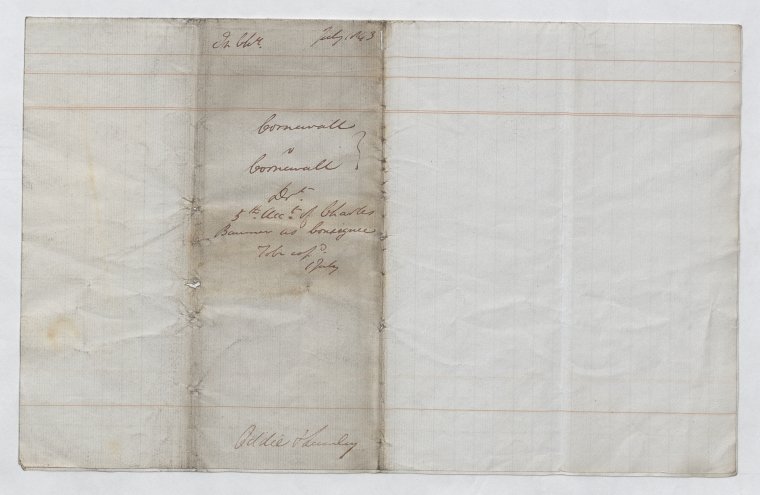 In Chr. July 1843
Cornewall
v
Cornewall
Dft
5th Acct of Charles
Bawmer as Consignee
To be cop.d
1 July
Oddie & Lumley